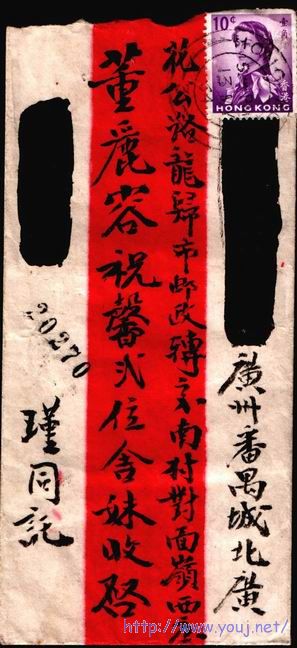 廣州番禺城北廣
花公路龍歸市邮政轉交南村對面嶺西屋
董麗容祝馨弍位舍妹收啓
瑾同託
20270
10¢
香港
HONG KONG
http://www.youj.net/